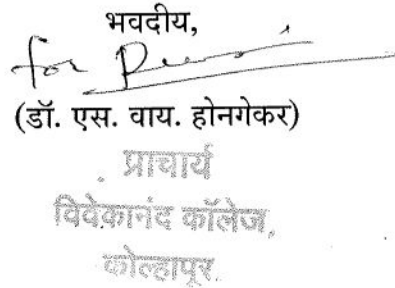 भवदीय,
for
(डॉ. एस. वाय. होनगेकर)
प्राचार्य
विवेकानंद कॉलेज,
कोल्हापूर.